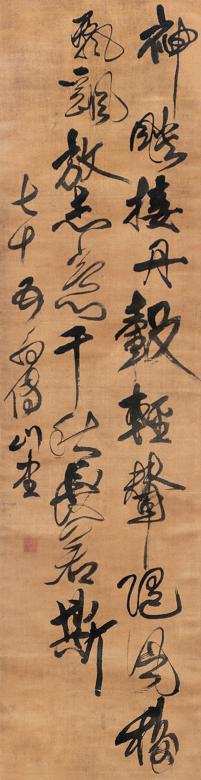 神飇接丹轂輕輦隨風移
飄颻放志意千秋長若斯
七十五翁傅山書